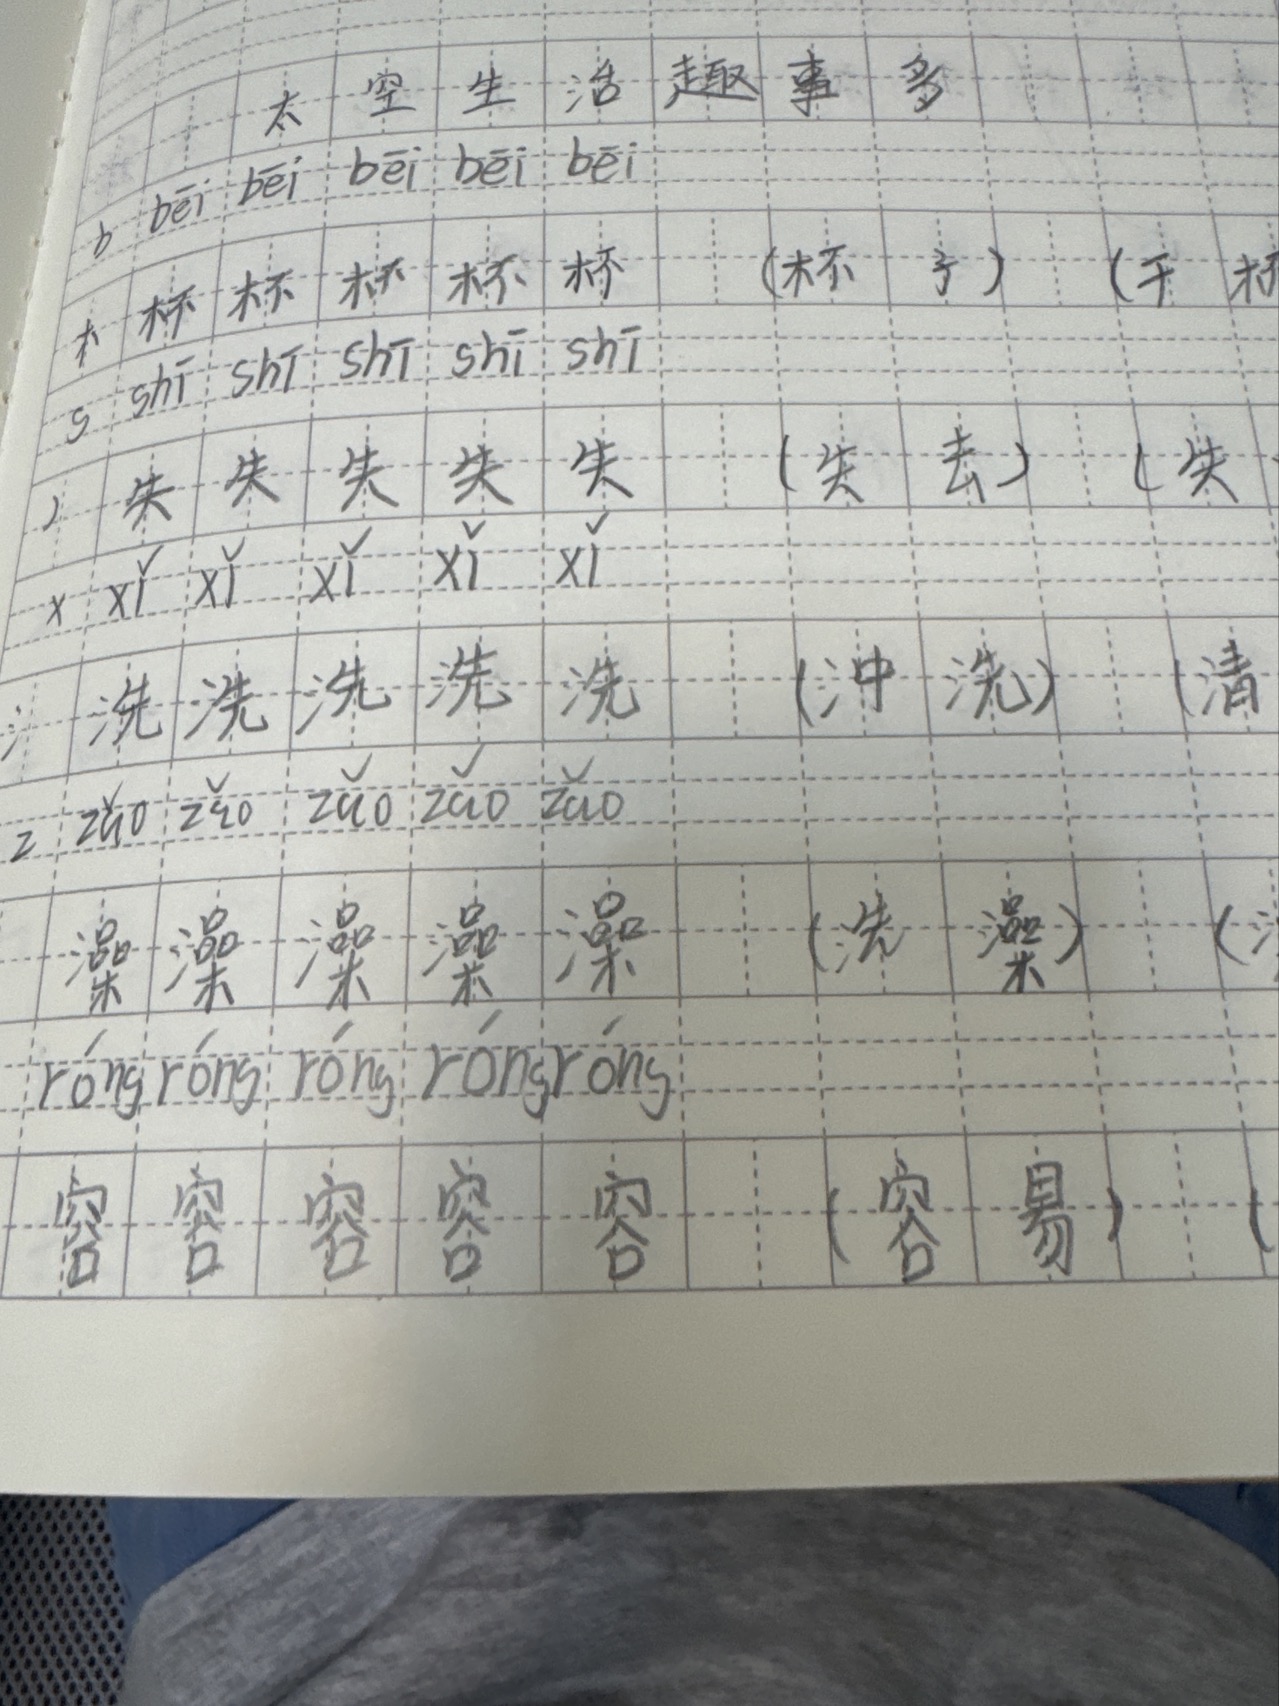 太空生活趣事多
b bēi bēi bēi bēi bēi
木 杯 杯 杯 杯 杯 (杯子) (干杯
s shī shī shī shī shī
丿 失 失 失 失 失 (失去) (失
x xǐ xǐ xǐ xǐ xǐ
氵 洗 洗 洗 洗 洗 (冲洗) (清
z zǎo zǎo zǎo zǎo zǎo
澡 澡 澡 澡 澡 (洗澡) (
róng róng róng róng róng
容 容 容 容 容 (容易) (